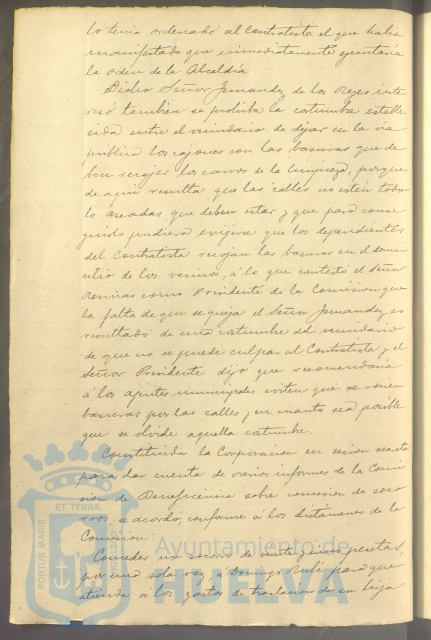 lo tenia ordenado al Contratista el que habia
manifestado que inmediatamente ejecutaria
la orden de la Alcaldía.
Dicho Señor Fernandez de los Reyes inte
resó tambien se prohiba la costumbre estable
cida entre el vecindario de dejar en la via
pública los cajones con las basuras que de
ben recojer los carros de la limpieza, porque
de aqui resulta que las calles no esten todo
lo aseadas que deben estar y que para conse
guirlo pudiera exijirse que los dependientes
del Contratista recojan las basuras en el domi
cilio de los vecinos, á lo que contestó el Señor
como Presidente de la Comision que
la falta de que se queja el Señor Fernandez es
resultado de una costumbre del vecindario
de que no se puede culpar al Contratista y el
Señor Presidente dijo que recomendaria
á los agentes municipales eviten que se
basuras por las calles y en cuanto sea posible
que se olvide aquella costumbre.
Constituida la Corporacion en sesion secreta
para dar cuenta de varios informes de la Comi
sion de Beneficencia sobre concesion de soco
rros, se acordó, conforme á los dictámenes de la
Comision:
Conceder un socorro de pesetas,
por una sola vez, á Domingo para que
atienda á los gastos de traslacion de su hija
PORTUS MARIS ET TERRÆ
Ayuntamiento de
HUELVA